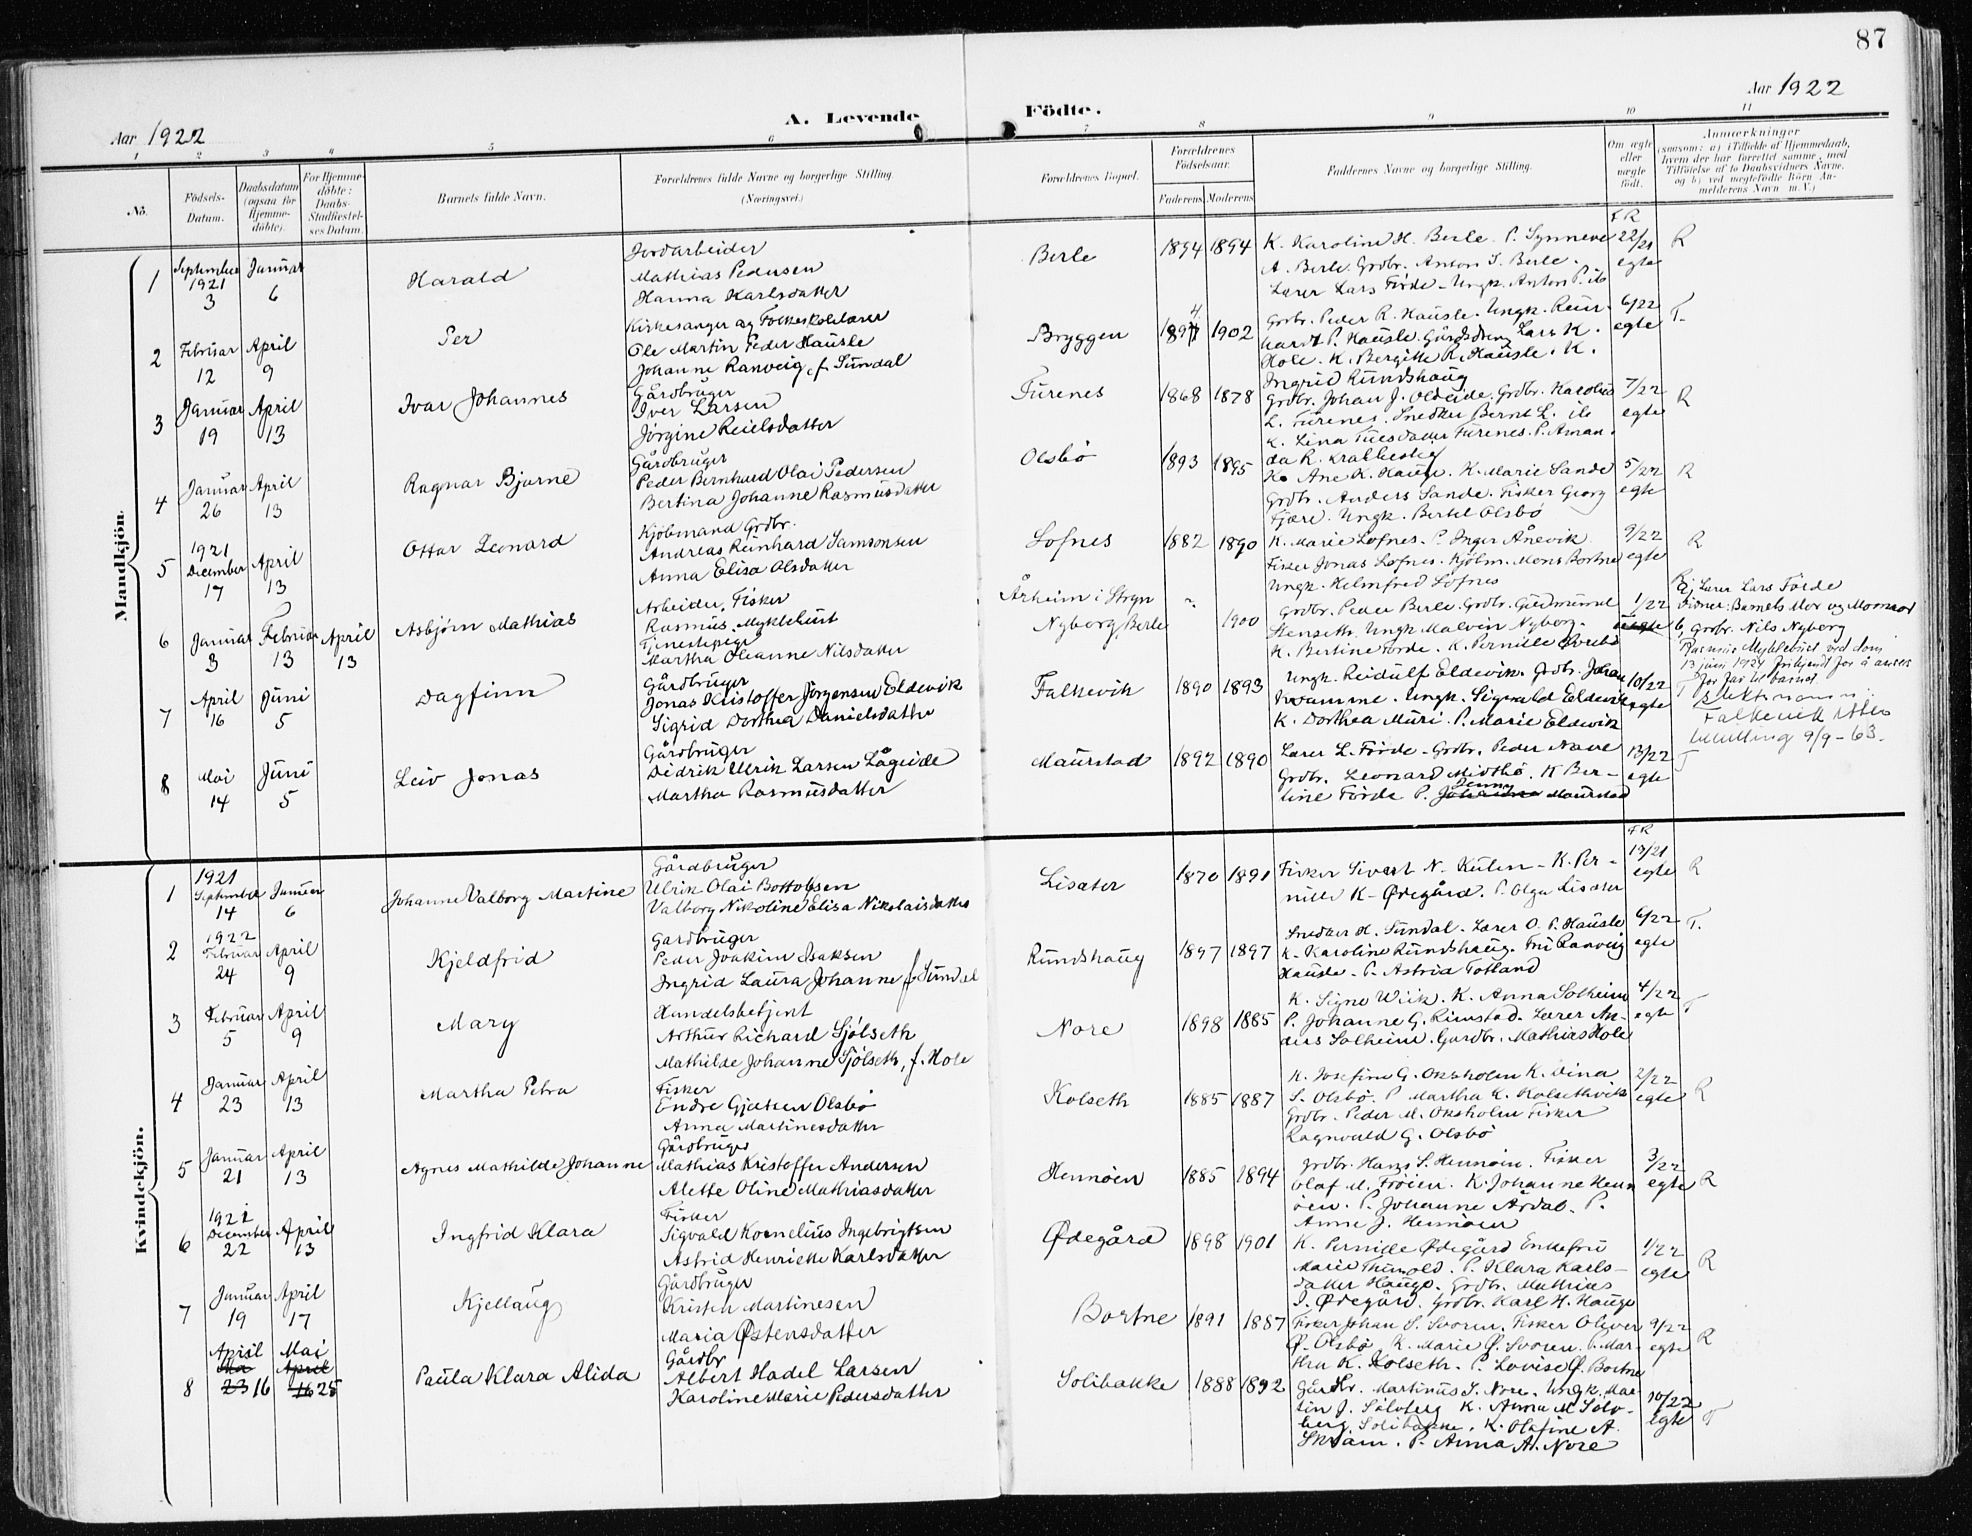 87
Aar 1922
A. Levende
Födte.
Aar 1922
1 2 3 4 5 6 7 8 9 10 11
No.
Födsels-Datum.
Daabsdatum (ogsaa for Hjemme-döbte).
For Hjemme-döbte: Daabs-Stadfæstel-ses Datum.
Barnets fulde Navn.
Forældrenes fulde Navne og borgerlige Stilling. (Næringsvei.)
Forældrenes Bopæl.
Forældrenes Födselsaar.
Faderens Moderens
Faddernes Navne og borgerlige Stilling.
Om ægte eller uægte födt.
Anmærkninger
(saasom: a) i Tilfælde af Hjemmedaab, hvem der har forrettet samme, med Tilföielse af to Daabsvidners Navne. og b) ved uægtefödte Börn An-melderens Navn m. V.)
Mandkjön.
1 September 1921 3 Januar 6 Harald
Jordarbeider
Mathias Pedersen
Hanna Karlsdatter
Berle 1894 1894
K. Karoline H. Berle. P. Synneve
A. Berle. Grdbr. Anton S. Berle.
Lærer Lars Förde. Ungk. Anton P. ib
F R 22/21 egte R
2 Februar 12 April 9 Per
Kirkesanger og Folkeskolelærer
Ole Martin Peder Hausle
Johanne Ranveig, f. Sundal
Bryggen 1894 1902
Grdbr. Peder R. Hausle. Ungk. Rein-
hardt P. Hausle. Gårdsdreng Lars K.
Hole. K. Bergitte R. Hausle. K.
Ingrid Rundshaug
6/22 egte T.
3 Januar 19 April 13 Ivar Johannes
Gårdbruger
Iver Larsen
Jörgine Reielsdatter
Furenes 1868 1878
Grdbr. Johan J. Oldeide. Grdbr. Karolus
L. Furenes. Snedker Bernt L. ib
K. Lina Tuesdatter Furenes. P. Aman-
da R. Krabbestig
7/22 egte R
4 Januar 26 April 13 Ragnar Bjarne
Gårdbruger
Peder Bernhard Olai Pedersen
Bertina Johanne Rasmusdatter
Olsbö 1893 1895
K. Ane K. Hauge. K. Marie Sande
Grdbr. Anders Sande. Fisker Georg
Fjære. Ungk. Bertel Olsbö
5/22 egte R
5 1921 December 17 April 13 Ottar Leonard
Kjöbmand Grdbr.
Andreas Reinhard Samsonsen
Anna Elisa Olsdatter
Lofnes 1882 1890
K. Marie Lofnes. P. Inger Ånevik
Fisker Jonas Lofnes. Kjöbm. Mons Bortne
Ungk. Helmfred Lofnes
9/22 egte R
6 Januar 3 Februar 13 April 13 Asbjörn Mathias
Arbeider, Fisker
Rasmus Myklebust
Tjenestepige
Martha Oleanne Nilsdatter
Årheim i Stryn
Nyborg, Berle 1900
Grdbr. Peder Berle. Grdbr. Gudmund
Stenseth. Ungk. Malvin Nyborg.
K. Bertine Förde. K. Pernille
1/22 uegte
Lærer Lars Förde
Vidner: Barnets Mor og Mormor
Grdbr. Nils Nyborg
Rasmus Myklebust ved dom
13 juni 1924 frikjendt for å anses
for far til barnet
7 April 16 Juni 5 Dagfinn
Gårdbruger
Jonas Kristoffer Jörgensen Eldevik
Sigrid Dorthea Danielsdatter
Falkevik 1890 1893
Ungk. Reidulf Eldevik. Grdbr. Johan
Ungk. Sigvald Eldevik
K. Dorthea Muri. P. Marie Eldevik
10/22 egte T
Falkevik
9/9-63.
8 Mai 14 Juni 5 Leiv Jonas
Gårdbruger
Didrik Ulrik Larsen Lågeide
Martha Rasmusdatter
Maurstad 1892 1890
Lærer L. Förde. Grdbr. Peder Nave
Grdbr. Leonard Midthö. K Ber-
tine Förde P. Jenny Maurstad
13/22 egte T
Kvindekjön.
1 1921 September 14 Januar 6 Johanne Valborg Martine
Gårdbruger
Ulrik Olai Bottolvsen
Valborg Nikoline Elisa Nikolaisdatter
Lisæter 1870 1891
Fisker Sivert N. Kulen. K. Per-
nille K. Ødegård. P. Olga Lisæter
F R 13/21 egte R
2 1922 Februar 24 April 9 Kjeldfrid
Gardbruger
Peder Joakim Isaksen
Ingrid Laura Johanne f. Sundal
Rundshaug 1897 1897
Snedker H. Sundal. Lærer O. P. Hausle
K. Karoline Rundshaug. Fru Ranveig
Hausle. P. Astrid Totland
6/22 egte T.
3 Februar 5 April 9 Mary
Handelsbetjent
Arthur Richard Sjölseth
Mathilde Johanne Sjölseth, f. Hole
Nore 1898 1885
K. Signe Wiik. K. Anna Solheim
P. Johanne G. Rimstad. Lærer An-
ders Solheim. Gardbr. Mathias Hole
4/22 egte T
4 Januar 23 April 13 Martha Petra
Fisker
Endre Gjertsen Olsbö
Anna Martinesdatter
Kolseth 1885 1887
K. Josefine G. Oksholm K. Dina
S. Olsbö. P Martha K. Kolsethvik
Grdbr. Peder M. Oksholm Fisker
Ragnvald G. Olsbö
2/22 egte R
5 Januar 21 April 13 Agnes Mathilde Johanne
Gårdbruger
Mathias Kristoffer Andersen
Alette Oline Mathiasdatter
Hennöen 1885 1894
Grdbr. Hans S. Hennöen. Fisker
Olaf M. Fröien. K. Johanne Henn
öen. P. Johanne Årdal. P.
Anne J. Hennöen
3/22 egte R
6 1921 December 22 April 13 Ingfrid Klara
Fisker
Sigvald Kornelius Ingebrigtsen
Astrid Henrikke Karlsdatter
Ødegård 1898 1901
K. Pernille Ødegård Enkefru
Marie Thunold. P. Klara Karls-
datter Hauge. Grdbr. Mathias
I. Ødegård. Grdbr. Karl H. Hauge
1/22 egte R
7 Januar 19 April 17 Kjellaug
Gårdbruger
Kristen Martinesen
Maria Østensdatter
Bortne 1891 1887
Fisker Johan S. Svoren. Fisker Oliver
Ø. Olsbö. K. Marie Ø. Svoren. P. Mar-
tha K. Kolseth. P. Lovise Ø. Bortne
9/22 egte R
8 April 23 16 Mai April 16 25 Paula Klara Alida
Gårdbr
Albert Hadel Larsen
Karoline Marie Pedersdatter
Solibakke 1888 1892
Gårdbr. Martinus S. Nore. Ungk. Mar-
tin J. Sölvberg K. Anna M Sölv-
berg, Solibakke. K. Olafine A.
Skram. P. Anna A. Nore
10/22 egte T